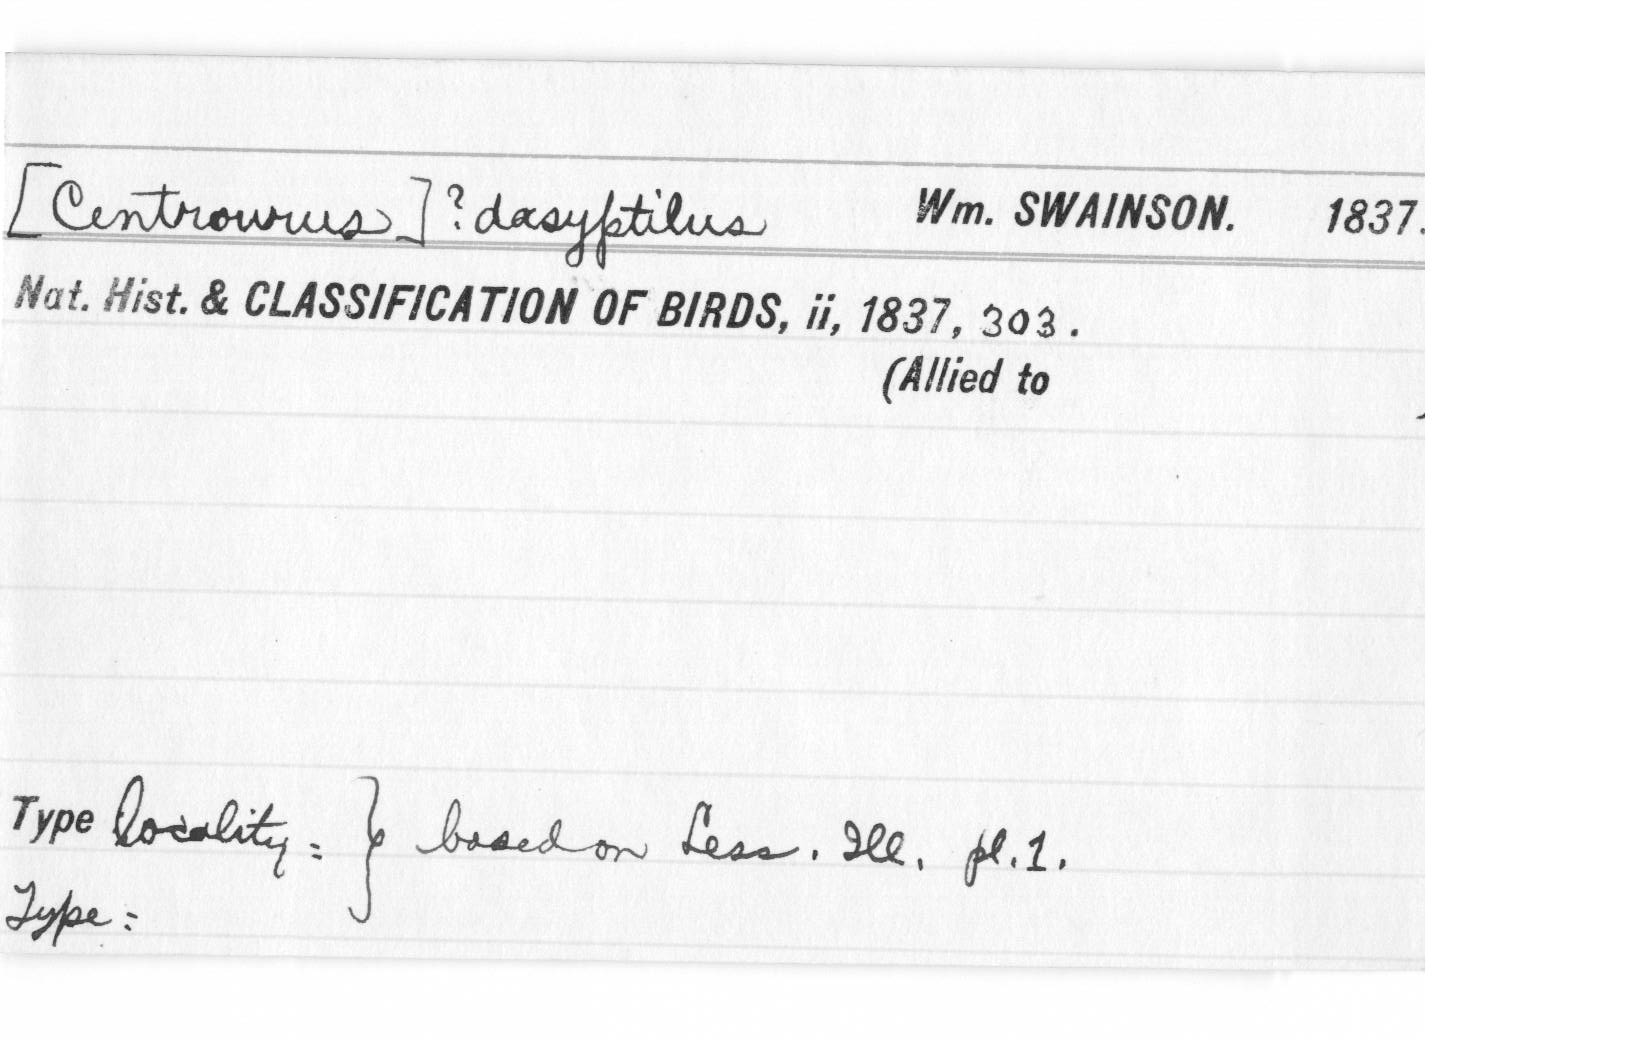 [Centrourus]? dasyptilus Wm. SWAINSON. 1837.
Nat. Hist. & CLASSIFICATION OF BIRDS, ii, 1837, 303.
(Allied to )
Type locality = } based on Less. Ill. pl. 1.
Type =